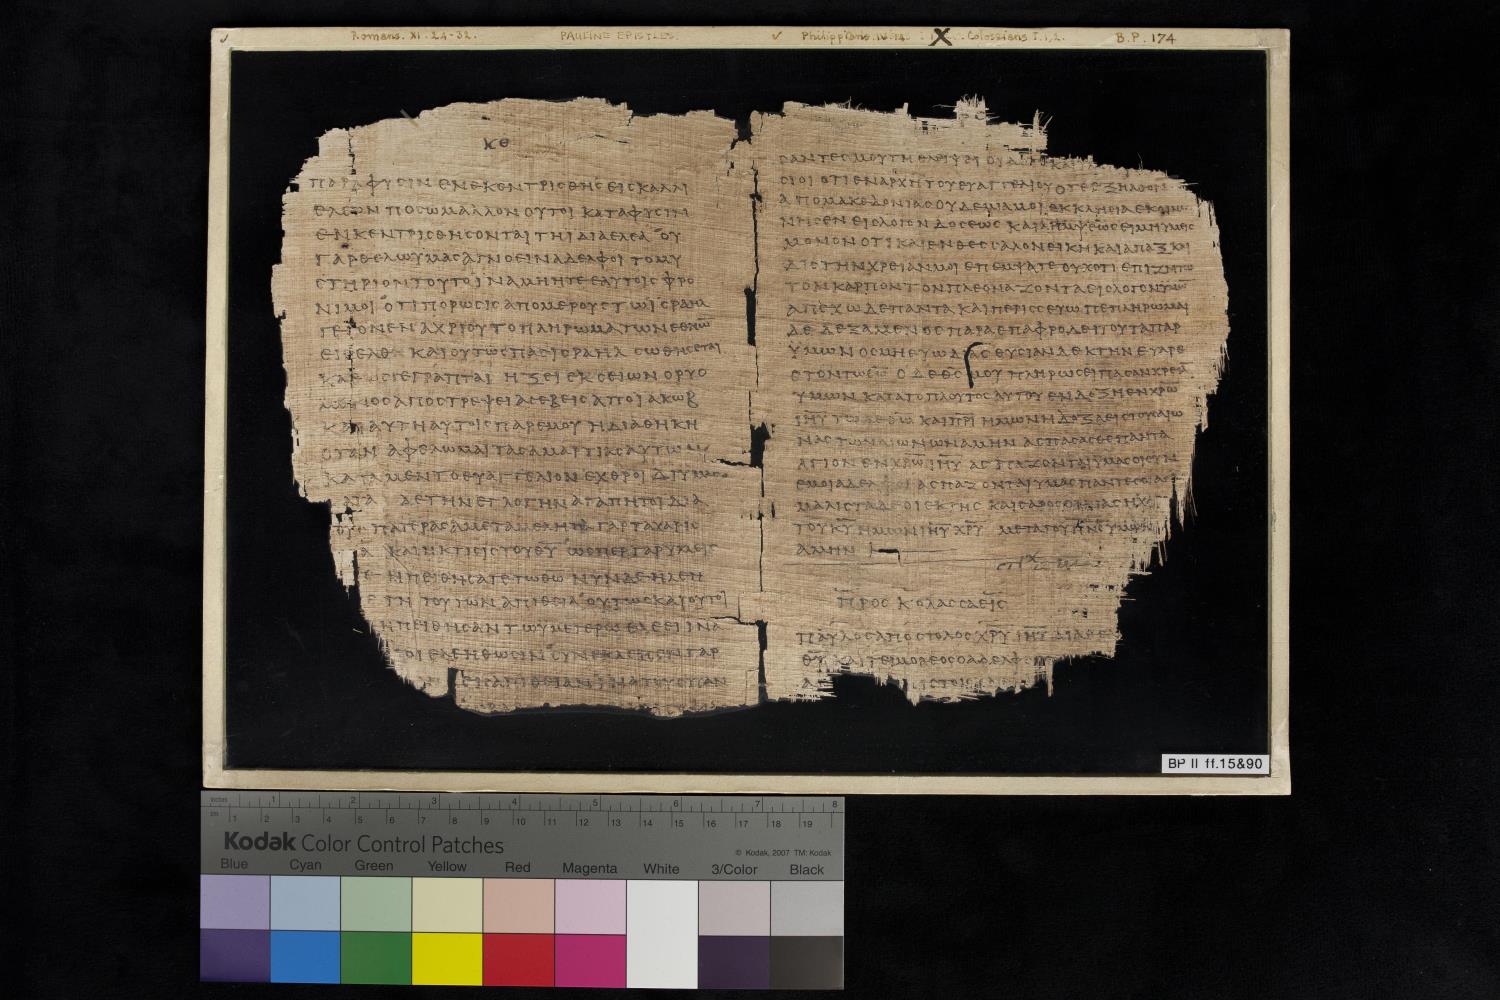 Romans. XI. 24-32. PAULINE EPISTLES. Philippians. IV. Colossians I. 1, 2. B.P. 174
κθ
παραφυσιν ενεκεντρισθης εις καλλι
ποσω μαλλον ουτοι κατα φυσιν
ενκεντρισθησονται τηι διαελεα ου
γαρ θελω υμας αγνοειν αδελφοι το μυ
στηριον τουτο ινα μη ητε εαυτοις φρο
νιμοι οτι πορωσις απο μερους τωι ισραηλ
γεγονεν αχρι ου το πληρωμα των εθνω
εισελθ και ουτως πας ισραηλ σωθησεται
γεγραπται ηξει εκ σειων ο ρυο
αποστρεψει ασεβεις απο ιακωβ
και αυτη αυτοις παρ εμου η διαθηκη
οταν αφελωμαι τας αμαρτιας αυτων
κατα μεν το ευαγγελιον εχθροι δι υμας
δε την εγλογην αγαπητοι δια
πατερας αμεταμελητα γαρ τα χαρις
κτισις του θυ ωσπερ γαρ υμεις
ηπειθησατε τω θω νυν δε ηλεη
τη τουτων απιθεια ουτως και ουτοι
ηπειθησαν τω υμετερω ελεει ινα
ελεηθωσιν συνεκλεισεν γαρ
σαντες μου τη θλιψει
οτι εν αρχη του ευαγγελιου οτε εξηλθον
απο μακεδονιας ουδεμια μοι εκκλησια εκοινω
νησεν εις λογον δοσεως και λημψεως ει μη υμεις
μονον οτι και εν θεσσαλονεικη και απαξ και
δις την χρειαν μοι επεμψατε ουχ οτι επιζητω
τον καρπον τον πλεοναζοντα εις λογον υμων
απεχω δε παντα και περισσευω πεπληρωμαι
δε δεξαμενος παρα επαφροδειτου τα παρ
υμων οσμην ευωδιας θυσιαν δεκτην ευαρε
στον τω θω ο δε θς μου πληρωσει πασαν χρεια
υμων κατα το πλουτος αυτου εν δοξη εν χρω
ιηυ τω δε θω και πρι ημων η δοξα εις τους αιω
νας των αιωνων αμην ασπασασθε παντα
αγιον εν χρω ιηυ ασπαζονται υμας οι συν
εμοι αδελφοι ασπαζονται υμας παντες οι αγιοι
μαλιστα δε οι εκ της καισαρος οικιας η χαρις
του κυ ημων ιηυ χρυ μετα του πνς υμων
αμην
προς κολασσαεις
παυλος αποστολος χρυ ιηυ δια θε
θυ και τειμοθεος ο αδελφ
BP II ff.15&90
inches 1 2 3 4 5 6 7 8
cm 1 2 3 4 5 6 7 8 9 10 11 12 13 14 15 16 17 18 19
Kodak Color Control Patches
© Kodak, 2007 TM: Kodak
Blue Cyan Green Yellow Red Magenta White 3/Color Black